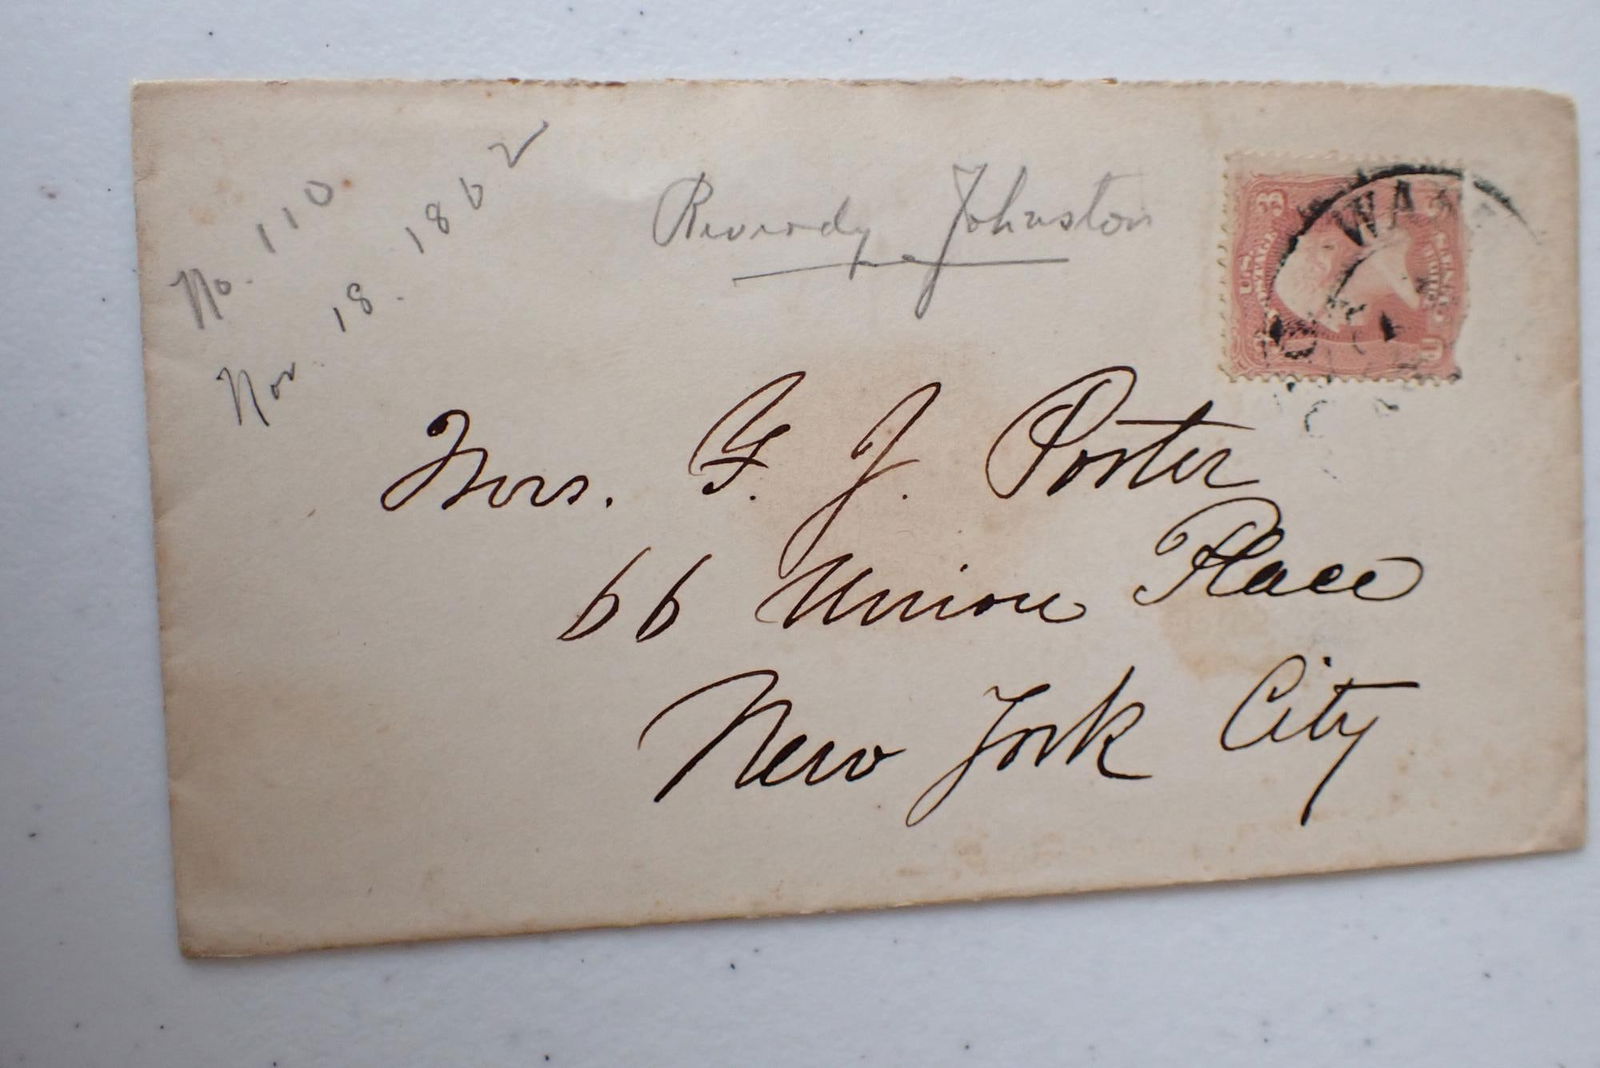 No. 110
Nov. 18. 1862
Reverdy Johnston
U.S. POSTAGE
3
3
WA
Mrs. F. J. Porter
66 Union Place
New York City